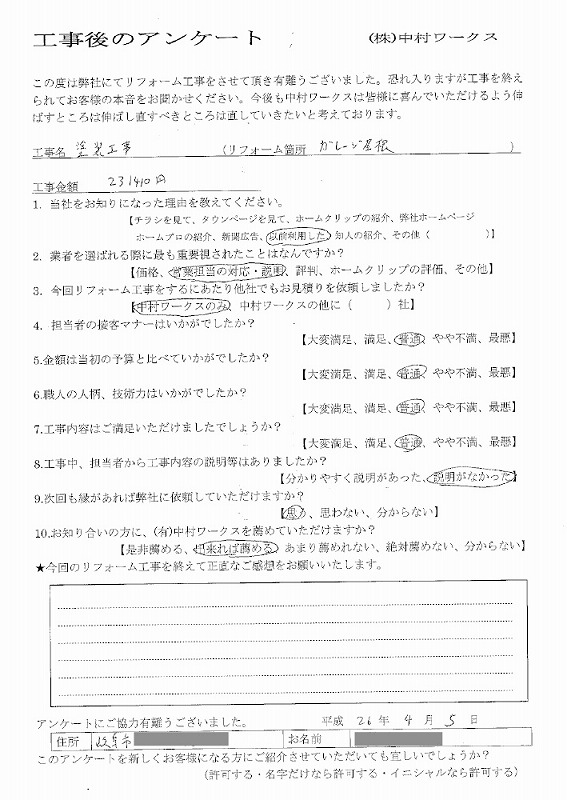 工事後のアンケート (株)中村ワークス
この度は弊社にてリフォーム工事をさせて頂き有難うございました。恐れ入りますが工事を終え
られてお客様の本音をお聞かせください。今後も中村ワークスは皆様に喜んでいただけるよう伸
ばすところは伸ばし直すべきところは直していきたいと考えております。
工事名 塗装工事 (リフォーム箇所 ガレージ屋根 )
工事金額 231410円
1. 当社をお知りになった理由を教えてください。
【チラシを見て、タウンページを見て、ホームクリップの紹介、弊社ホームページ
ホームプロの紹介、新聞広告、以前利用した、知人の紹介、その他( )】
2. 業者を選ばれる際に最も重要視されたことはなんですか?
【価格、営業担当の対応・説明、評判、ホームクリップの評価、その他】
3. 今回リフォーム工事をするにあたり他社でもお見積りを依頼しましたか?
【中村ワークスのみ、中村ワークスの他に( )社】
4. 担当者の接客マナーはいかがでしたか?
【大変満足、満足、普通、やや不満、最悪】
5.金額は当初の予算と比べていかがでしたか?
【大変満足、満足、普通、やや不満、最悪】
6.職人の人柄、技術力はいかがでしたか?
【大変満足、満足、普通、やや不満、最悪】
7.工事内容はご満足いただけましたでしょうか?
【大変満足、満足、普通、やや不満、最悪】
8.工事中、担当者から工事内容の説明等はありましたか?
【分かりやすく説明があった、説明がなかった】
9.次回も縁があれば弊社に依頼していただけますか?
【思う、思わない、分からない】
10.お知り合いの方に、(有)中村ワークスを薦めていただけますか?
【是非薦める、出来れば薦める、あまり薦めれない、絶対薦めない、分からない】
★今回のリフォーム工事を終えて正直なご感想をお願いいたします。
アンケートにご協力有難うございました。 平成 26 年 4 月 5 日
住所 岐阜市 お名前
このアンケートを新しくお客様になる方にご紹介させていただいても宜しいでしょうか?
(許可する・名字だけなら許可する・イニシャルなら許可する)